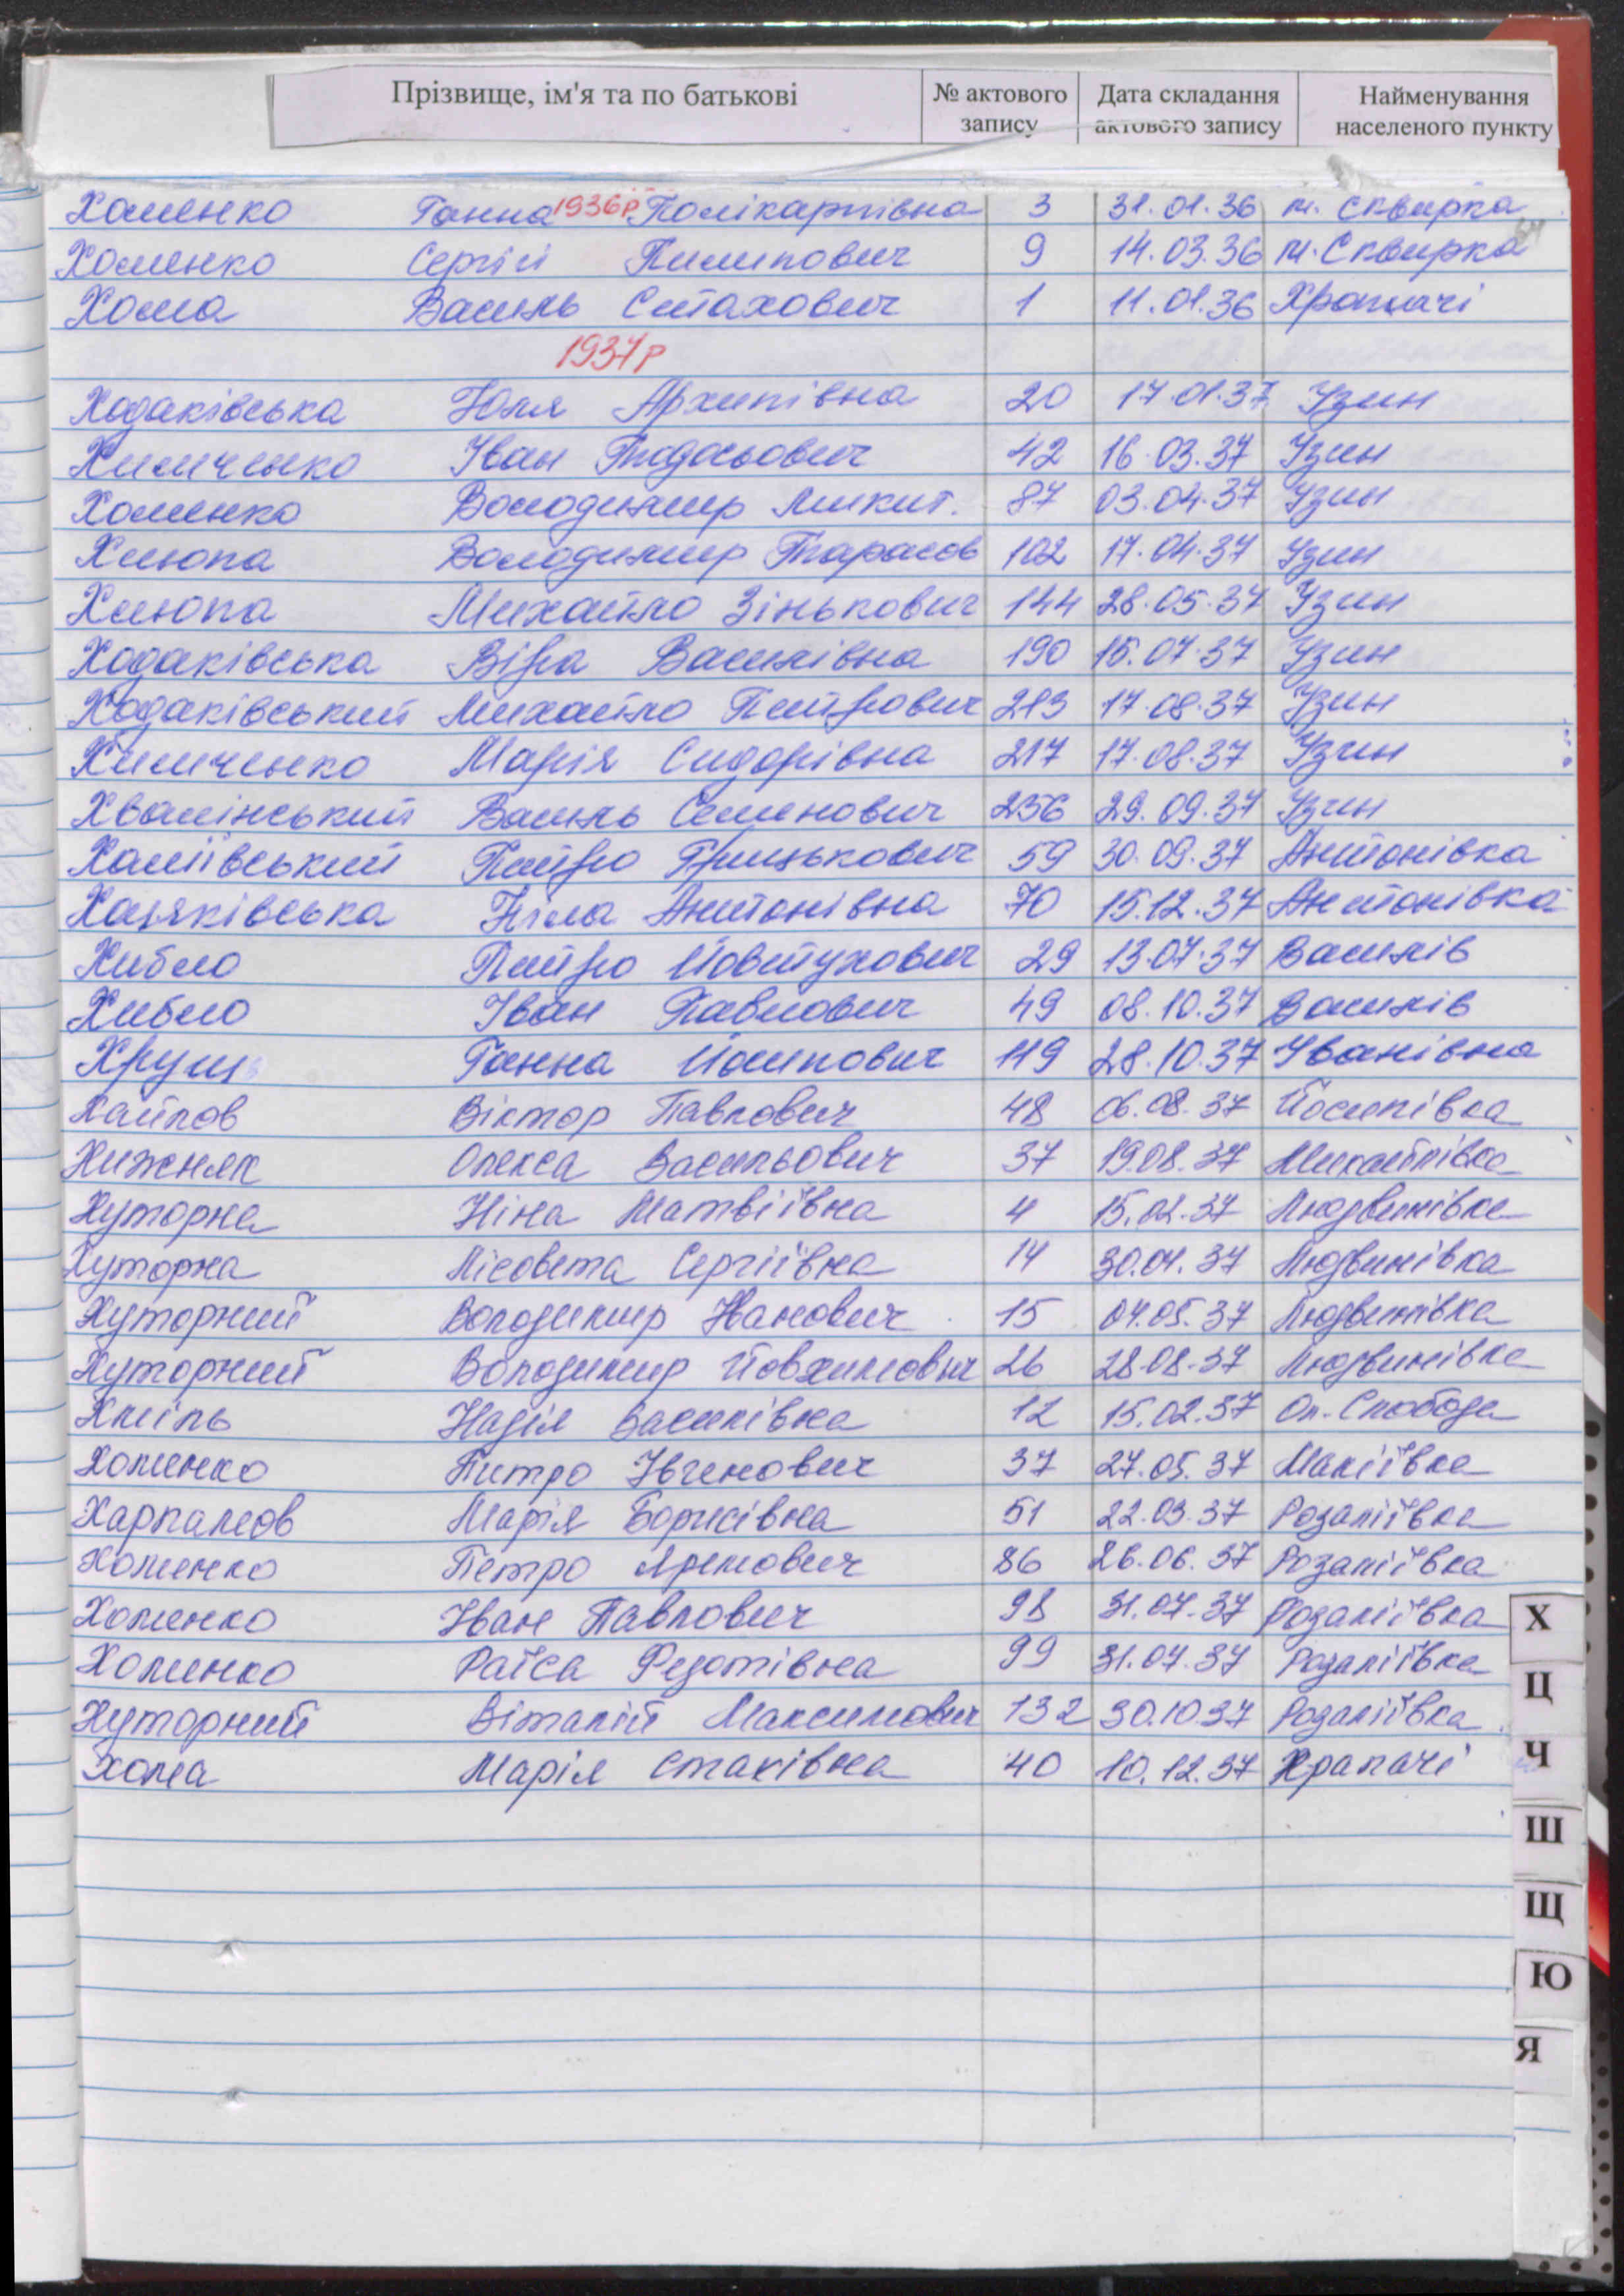 Прізвище, ім'я та по батькові № актового запису Дата складання актового запису Найменування населеного пункту
1936р
Хоменко Ганна Полікарпівна 3 31.01.36 м. Сквирка
Хоменко Сергій Пилипович 9 14.03.36 м. Сквирка
Хома Василь Стахович 1 11.01.36 Храпачі
1937р
Ходаківська Юля Архипівна 20 17.01.37 Узин
Химченко Іван Тодосьович 42 16.03.37 Узин
Хоменко Володимир Микит. 87 03.04.37 Узин
Хлюпа Володимир Тарасов 102 17.04.37 Узин
Хлюпа Михайло Зінькович 144 28.05.37 Узин
Ходаківська Віра Василівна 190 15.07.37 Узин
Ходаківський Михайло Петрович 213 17.08.37 Узин
Химченко Марія Сидорівна 217 17.08.37 Узин
Хвалінський Василь Семенович 256 29.09.37 Узин
Хаміївський Петро Грицькович 59 30.09.37 Антонівка
Антонівна 70 15.12.37 Антонівка
Хибло Петро Йовтухович 29 13.07.37 Василів
Хибло Іван Павлович 49 08.10.37 Василів
Хрущ Ганна Йосипович 119 28.10.37 Іванівна
Хайлов Віктор Павлович 48 06.08.37 Йосипівка
Хижняк Олекса Васильович 37 19.08.37 Михайлівка
Хуторна Ніна Матвіївна 4 15.02.37 Людвинівка
Хуторна Лісовета Сергіївна 14 30.04.37 Людвинівка
Хуторний Володимир Іванович 15 04.05.37 Людвинівка
Хуторний Володимир Йовхимович 26 28.08.37 Людвинівка
Хміль Надія Василівна 12 15.02.37 Ол. Слобода
Хоменко Питро Івгенович 37 27.05.37 Макіївка
Харламов Марія Борисівна 51 22.03.37 Розаліївка
Хоменко Петро Яремович 86 26.06.37 Розаліївка
Хоменко Іван Павлович 98 31.07.37 Розаліївка
Хоменко Раїса Федотівна 99 31.07.37 Розаліївка
Хуторний Віталій Максимович 132 30.10.37 Розаліївка
Хома Марія Стахівна 40 10.12.37 Храпачі
Х
Ц
Ч
Ш
Щ
Ю
Я